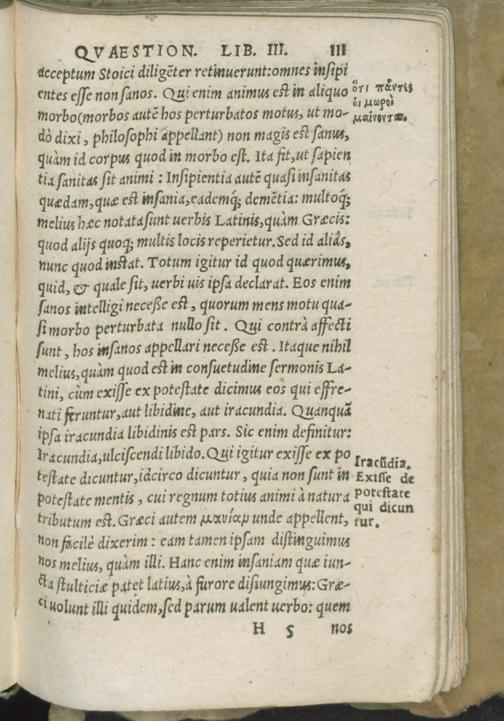 QVAESTION. LIB. III. 111
acceptum Stoici diligẽter retinuerunt:omnes insipi
entes esse non sanos. Qui enim animus est in aliquo
morbo(morbos autẽ hos perturbatos motus, ut mo-
dò dixi, philosophi appellant) non magis est sanus,
quàm id corpus quod in morbo est. Ita fit,ut sapien
tia sanitas sit animi : Insipientia autẽ quasi insanitas
quædam,quæ est insania,eademq́; demẽtia: multoq́;
melius hæc notata sunt verbis Latinis,quàm Græcis:
quod alijs quoq; multis locis reperietur.Sed id aliâs,
nunc quod instat. Totum igitur id quod quærimus,
quid, & quale sit, verbi vis ipsa declarat. Eos enim
sanos intelligi necesse est, quorum mens motu qua-
si morbo perturbata nullo sit. Qui contrà affecti
sunt, hos insanos appellari necesse est. Itaque nihil
melius,quàm quod est in consuetudine sermonis La-
tini, cùm exisse ex potestate dicimus eos qui effre-
nati feruntur,aut libidine, aut iracundia. Quanquã
ipsa iracundia libidinis est pars. Sic enim definitur:
Iracundia,ulciscendi libido. Qui igitur exisse ex po
testate dicuntur,idcirco dicuntur, quia non sunt in
potestate mentis, cui regnum totius animi à natura
tributum est. Græci autem μανίαν unde appellent,
non facilè dixerim : eam tamen ipsam distinguimus
nos melius, quàm illi. Hanc enim insaniam quæ iun-
cta stulticiæ patet latius,à furore disiungimus: Græ-
ci volunt illi quidem,sed parum ualent verbo: quem
H 5 nos
ὅτι πάντες
οἱ μωροὶ
μαίνονται.
Iracũdia.
Exisse de
potestate
qui dicun
tur.